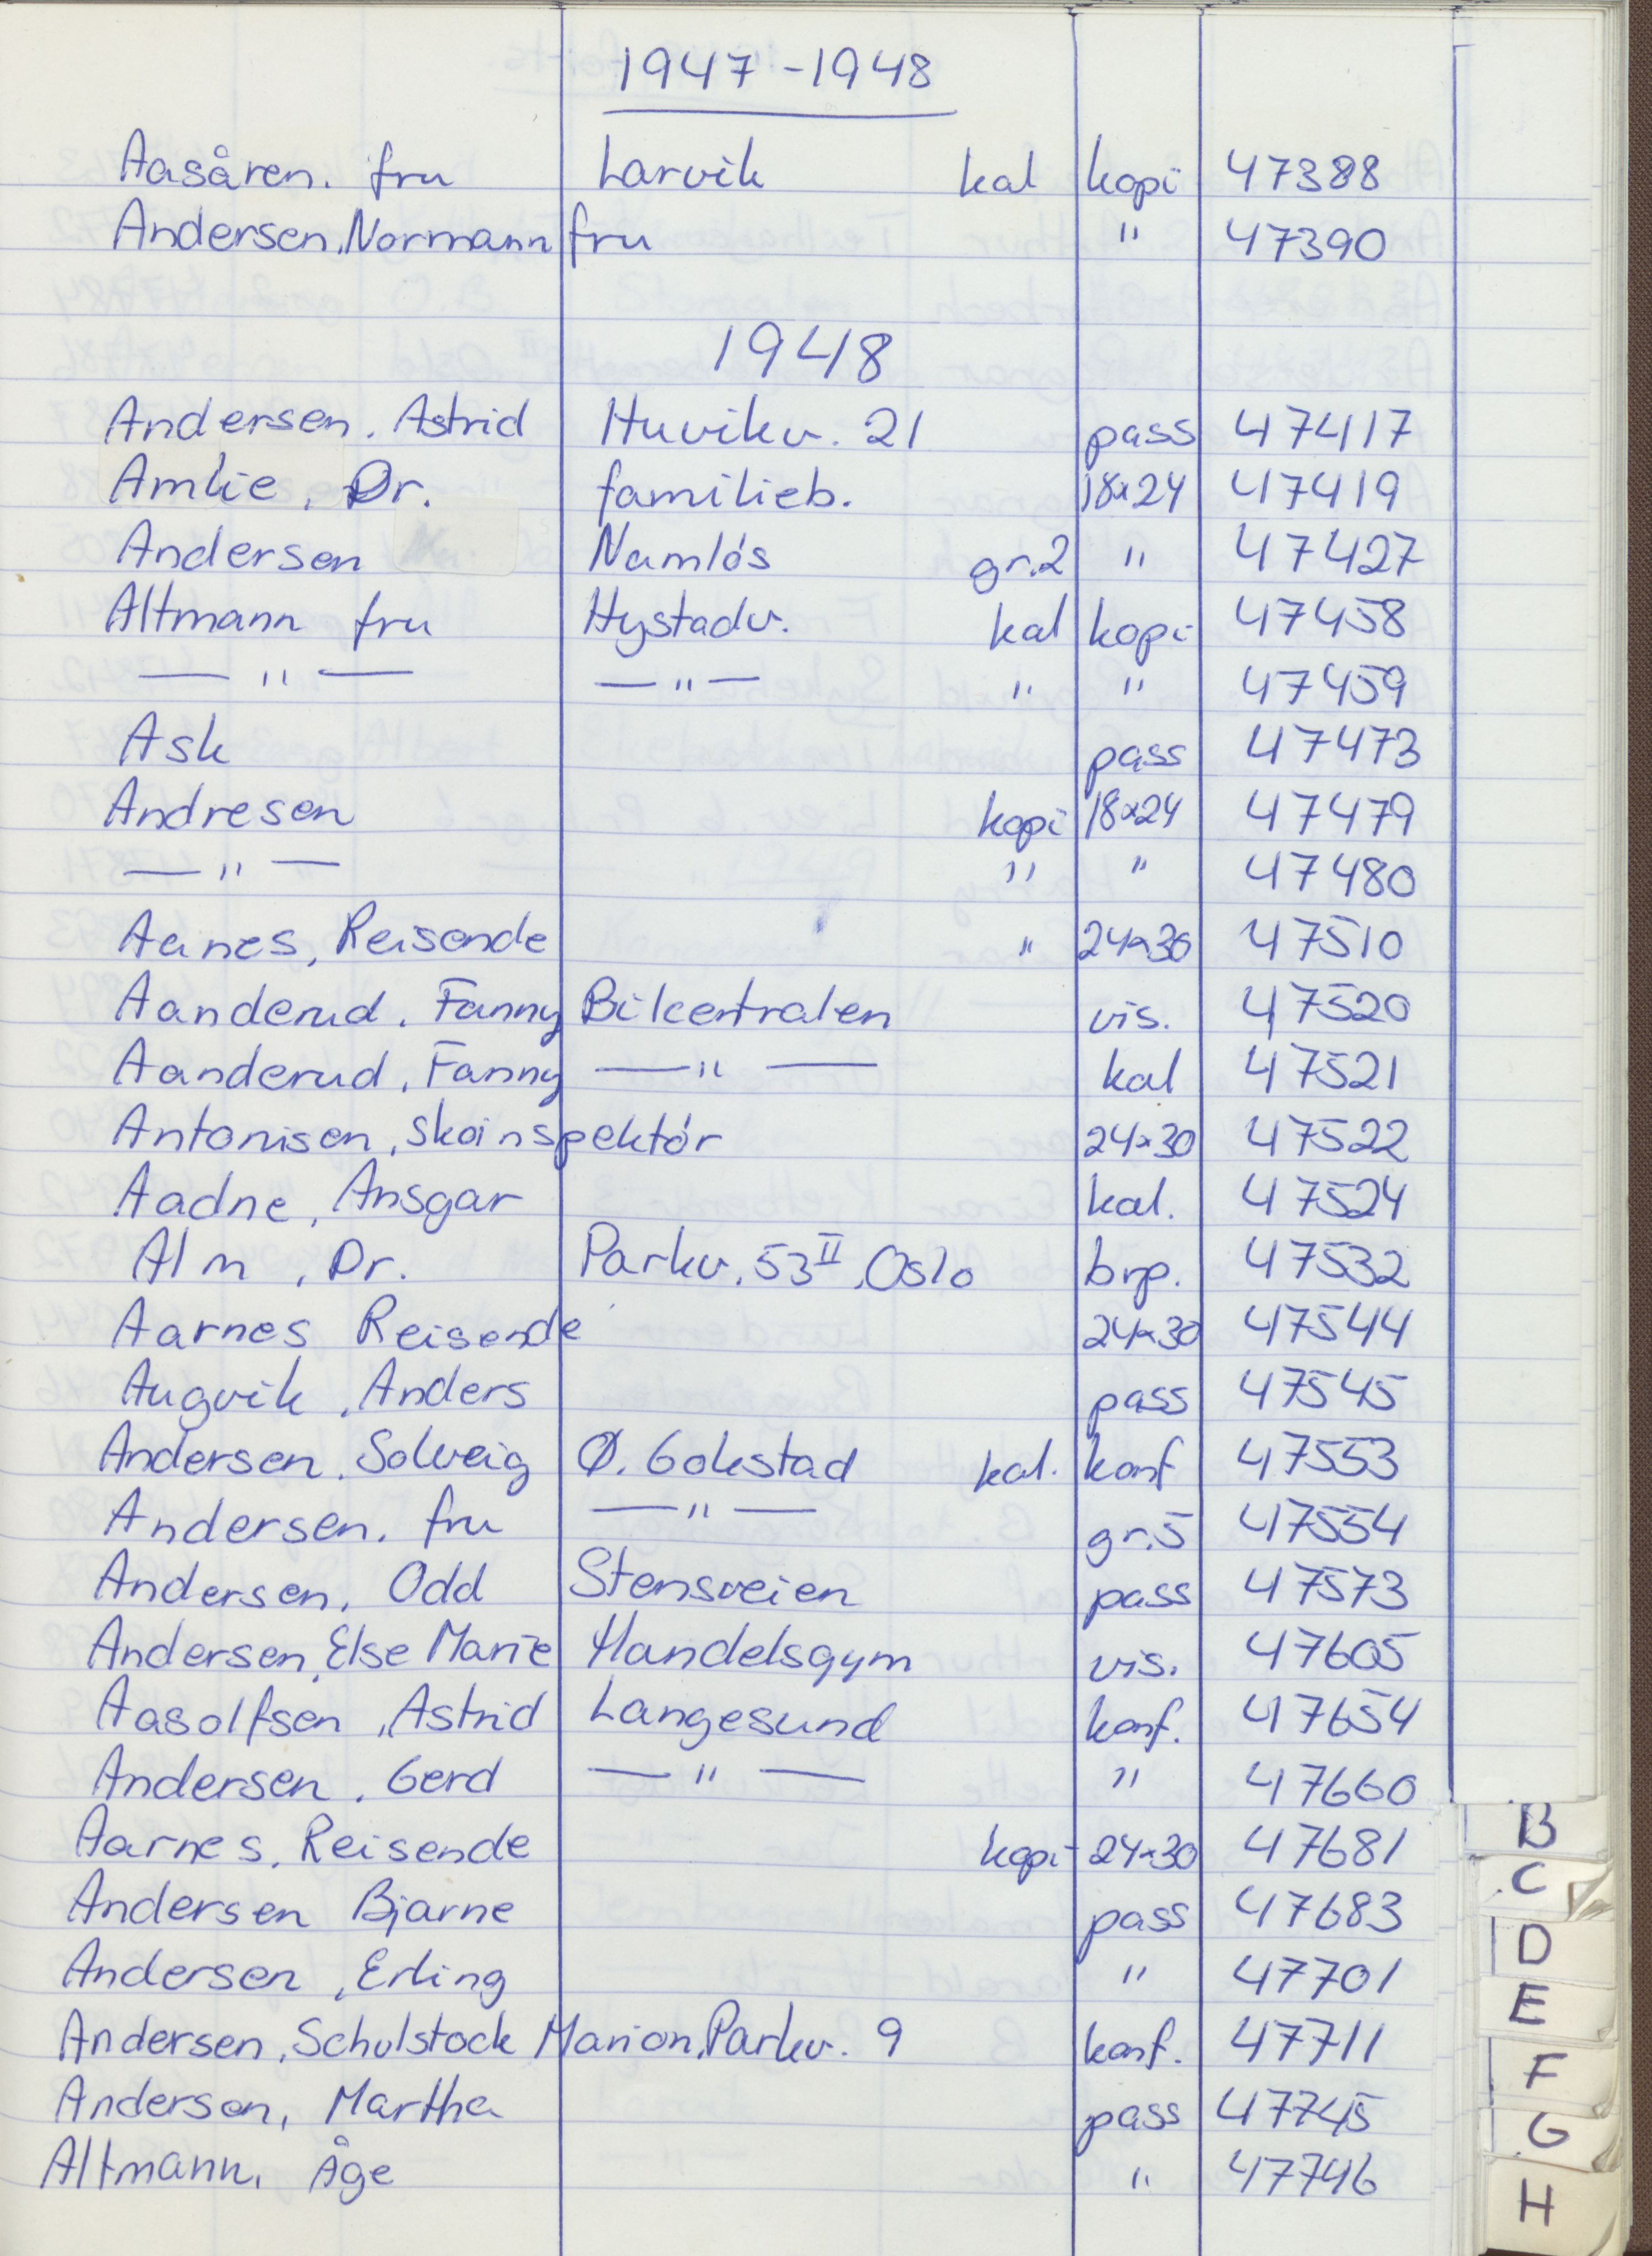 1947-1948
Aasåren. fru Larvik kal kopi 47388
Andersen, Normann fru " 47390
1948
Andersen. Astrid Huvikv. 21 pass 47417
Amlie, Dr. familieb. 18x24 47419
Andersen Namlós gr.2 " 47427
Altmann fru Hystadv. kal kopi 47458
— " — — " — " " 47459
Ask pass 47473
Andresen kopi 18x24 47479
— " — " " 47480
Aanes, Reisende " 24x30 47510
Aanderud. Fanny Bilcentralen vis. 47520
Aanderud, Fanny — " — kal 47521
Antonisen, skoinspektór 24x30 47522
Aadne, Ansgar kal. 47524
Alm, Dr. Parkv. 53 II, Oslo brp. 47532
Aarnes Reisende 24x30 47544
Augvik, Anders pass 47545
Andersen. Solveig Ø. Gokstad kal. konf 47553
Andersen. fru — " — gr.5 47554
Andersen, Odd Stensveien pass 47573
Andersen, Else Marie Handelsgym vis. 47605
Aasolfsen, Astrid Langesund konf. 47654
Andersen, Gerd — " — " 47660
Aarnes, Reisende kopi 24x30 47681
Andersen Bjarne pass 47683
Andersen, Erling " 47701
Andersen, Schulstock Marion, Parkv. 9 konf. 47711
Andersen, Martha pass 47745
Altmann, Åge " 47746
B
C
D
E
F
G
H